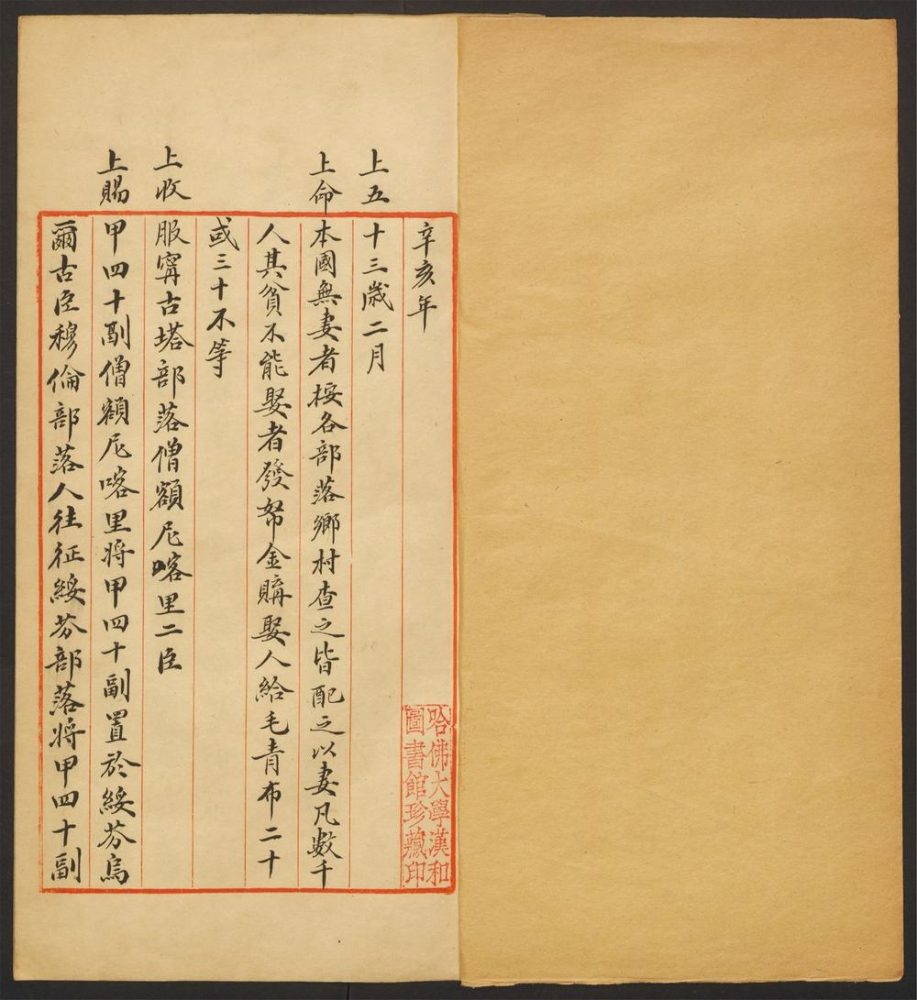 辛亥年
上五十三歲二月
上命本國無妻者按各部落鄉村查之皆配之以妻凡數千
人其貧不能娶者發帑金購娶人給毛青布二十
或三十不等
上收服甯古塔部落僧額尼喀里二臣
上賜甲四十副僧額尼喀里將甲四十副置於綏芬烏
爾古臣穆倫部落人往征綏芬部落將甲四十副
哈佛大學漢和
圖書館珍藏印